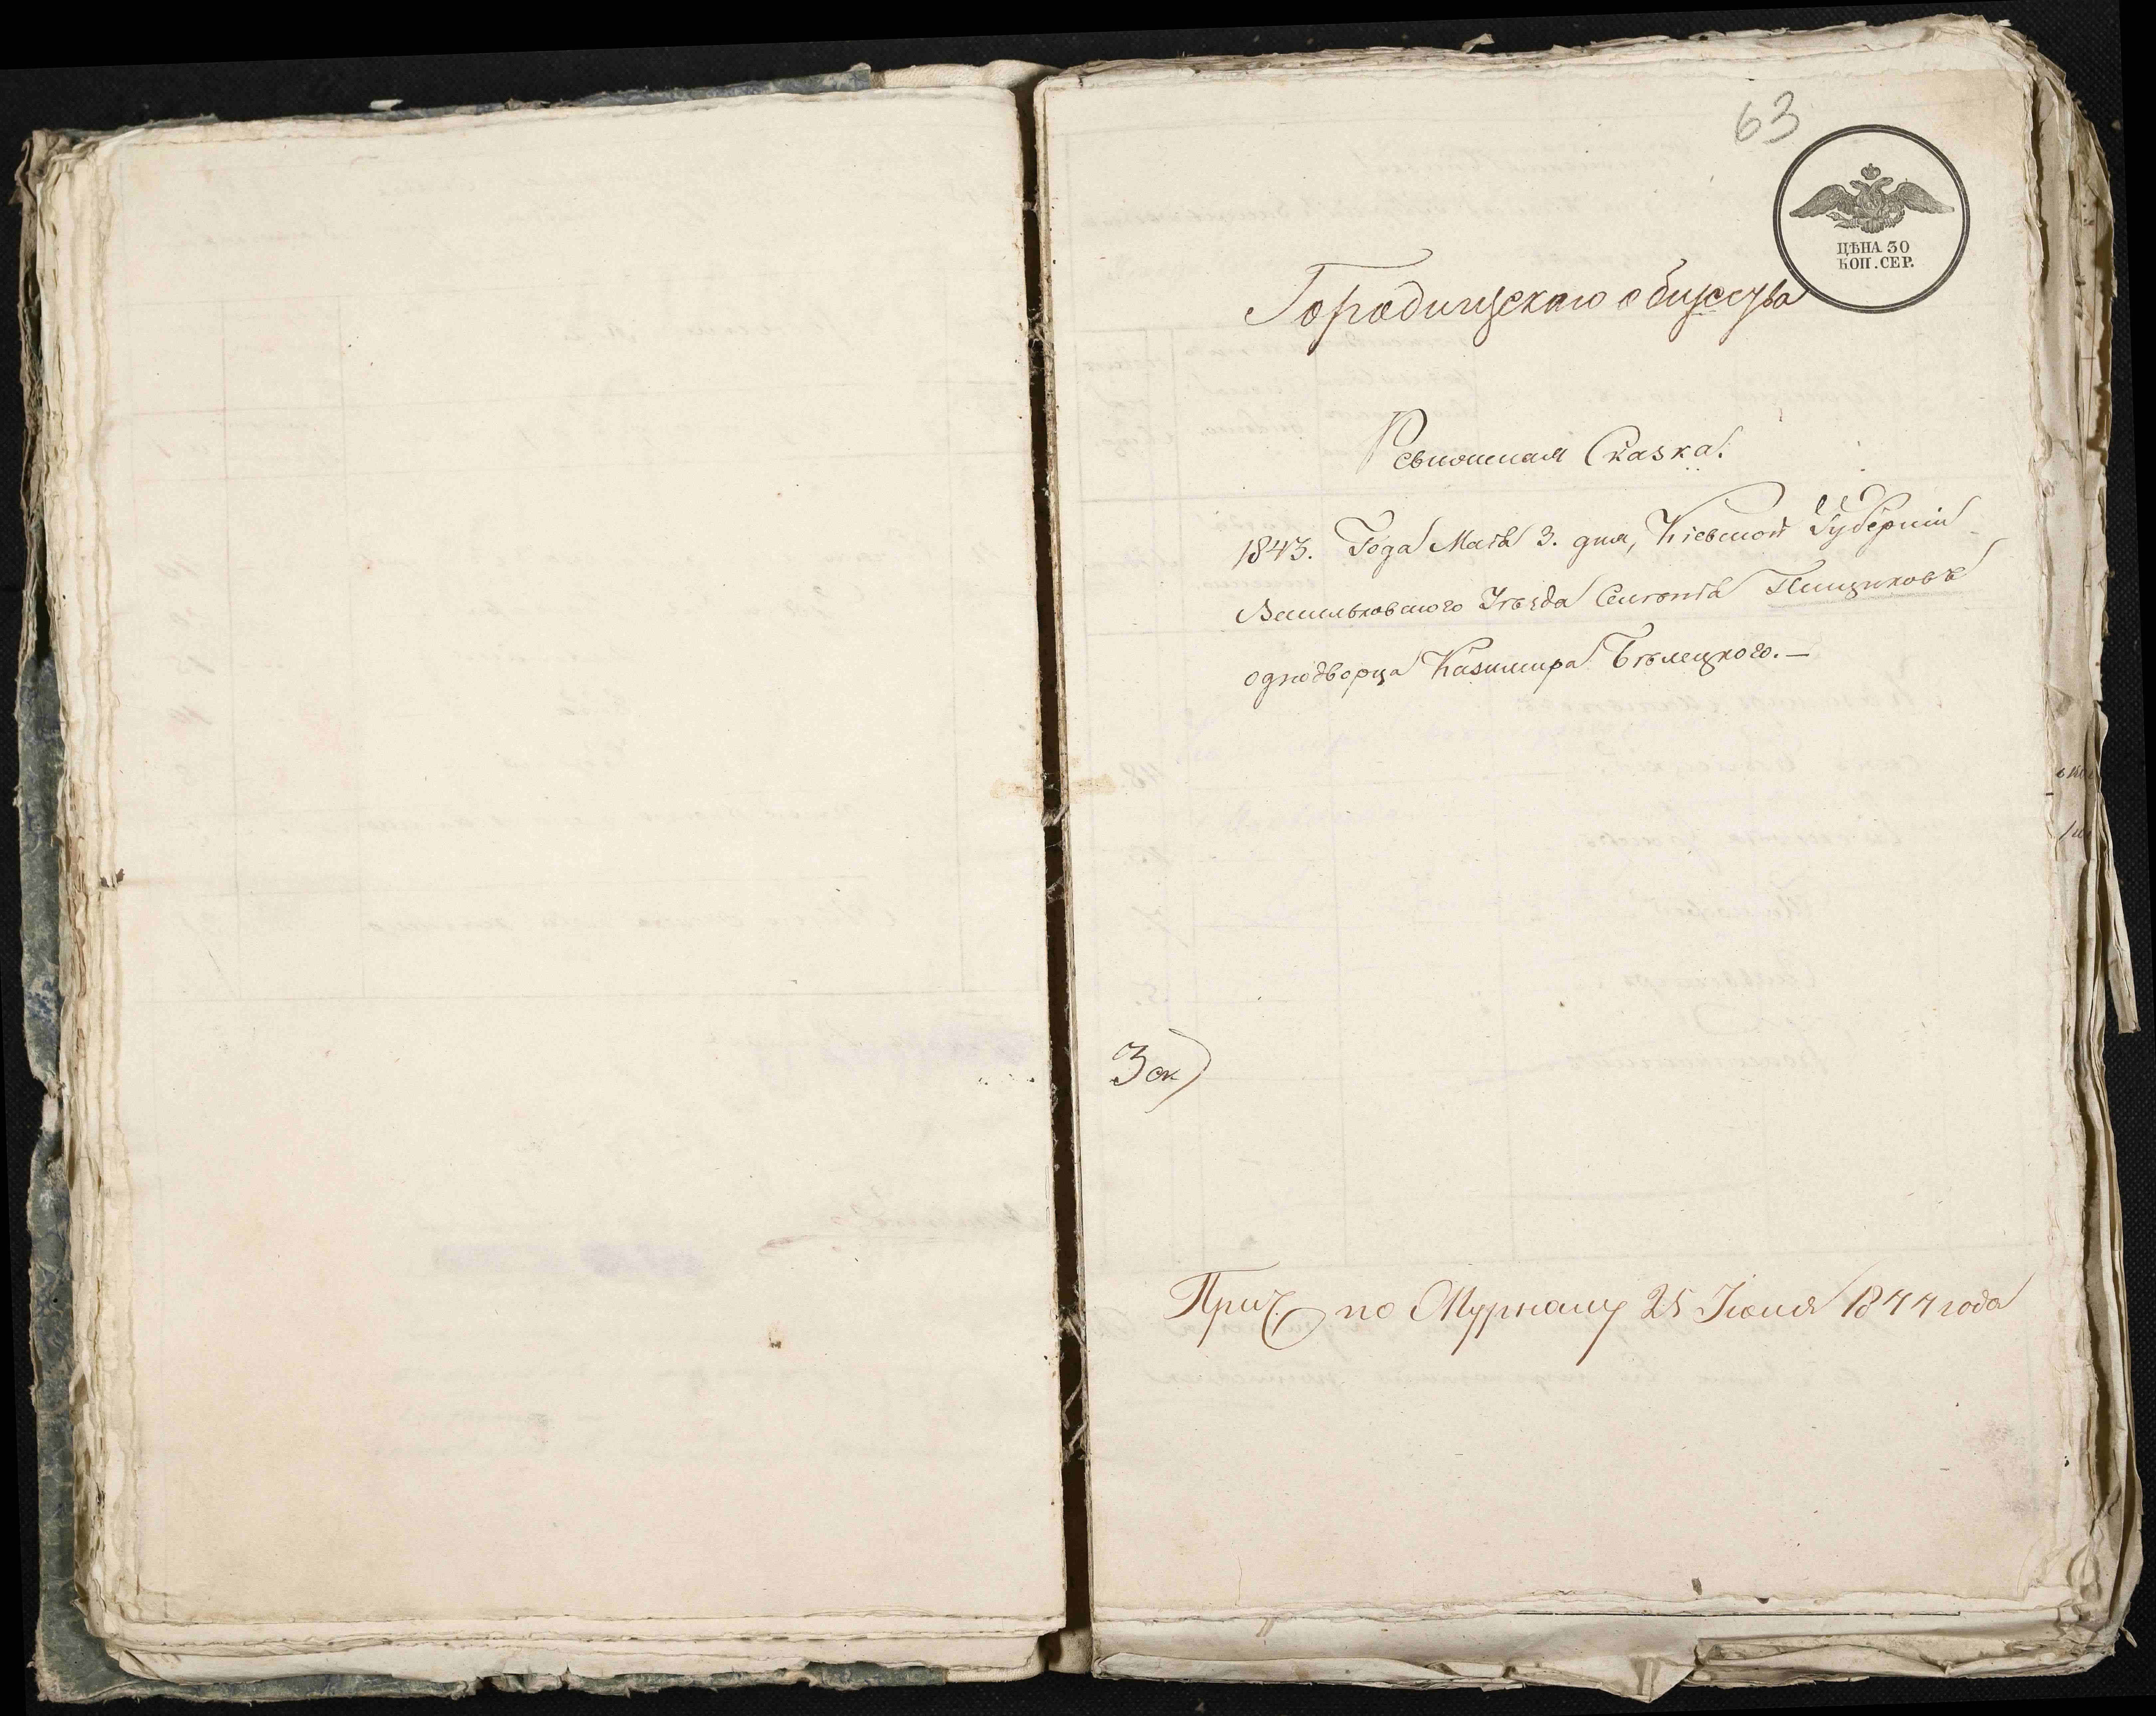 63
ЦѢНА 30
КОП. СЕР.
Городищскаго общества
Ревизская Сказка.
1843. Года Маiя 3. дня, Кіевской Губерніи
Васильковского Уѣзда Селенія Пищиковъ
однодворца Казимира Бѣлецкого.—
3 ок)
по Журналу 25 Июня 1844 года